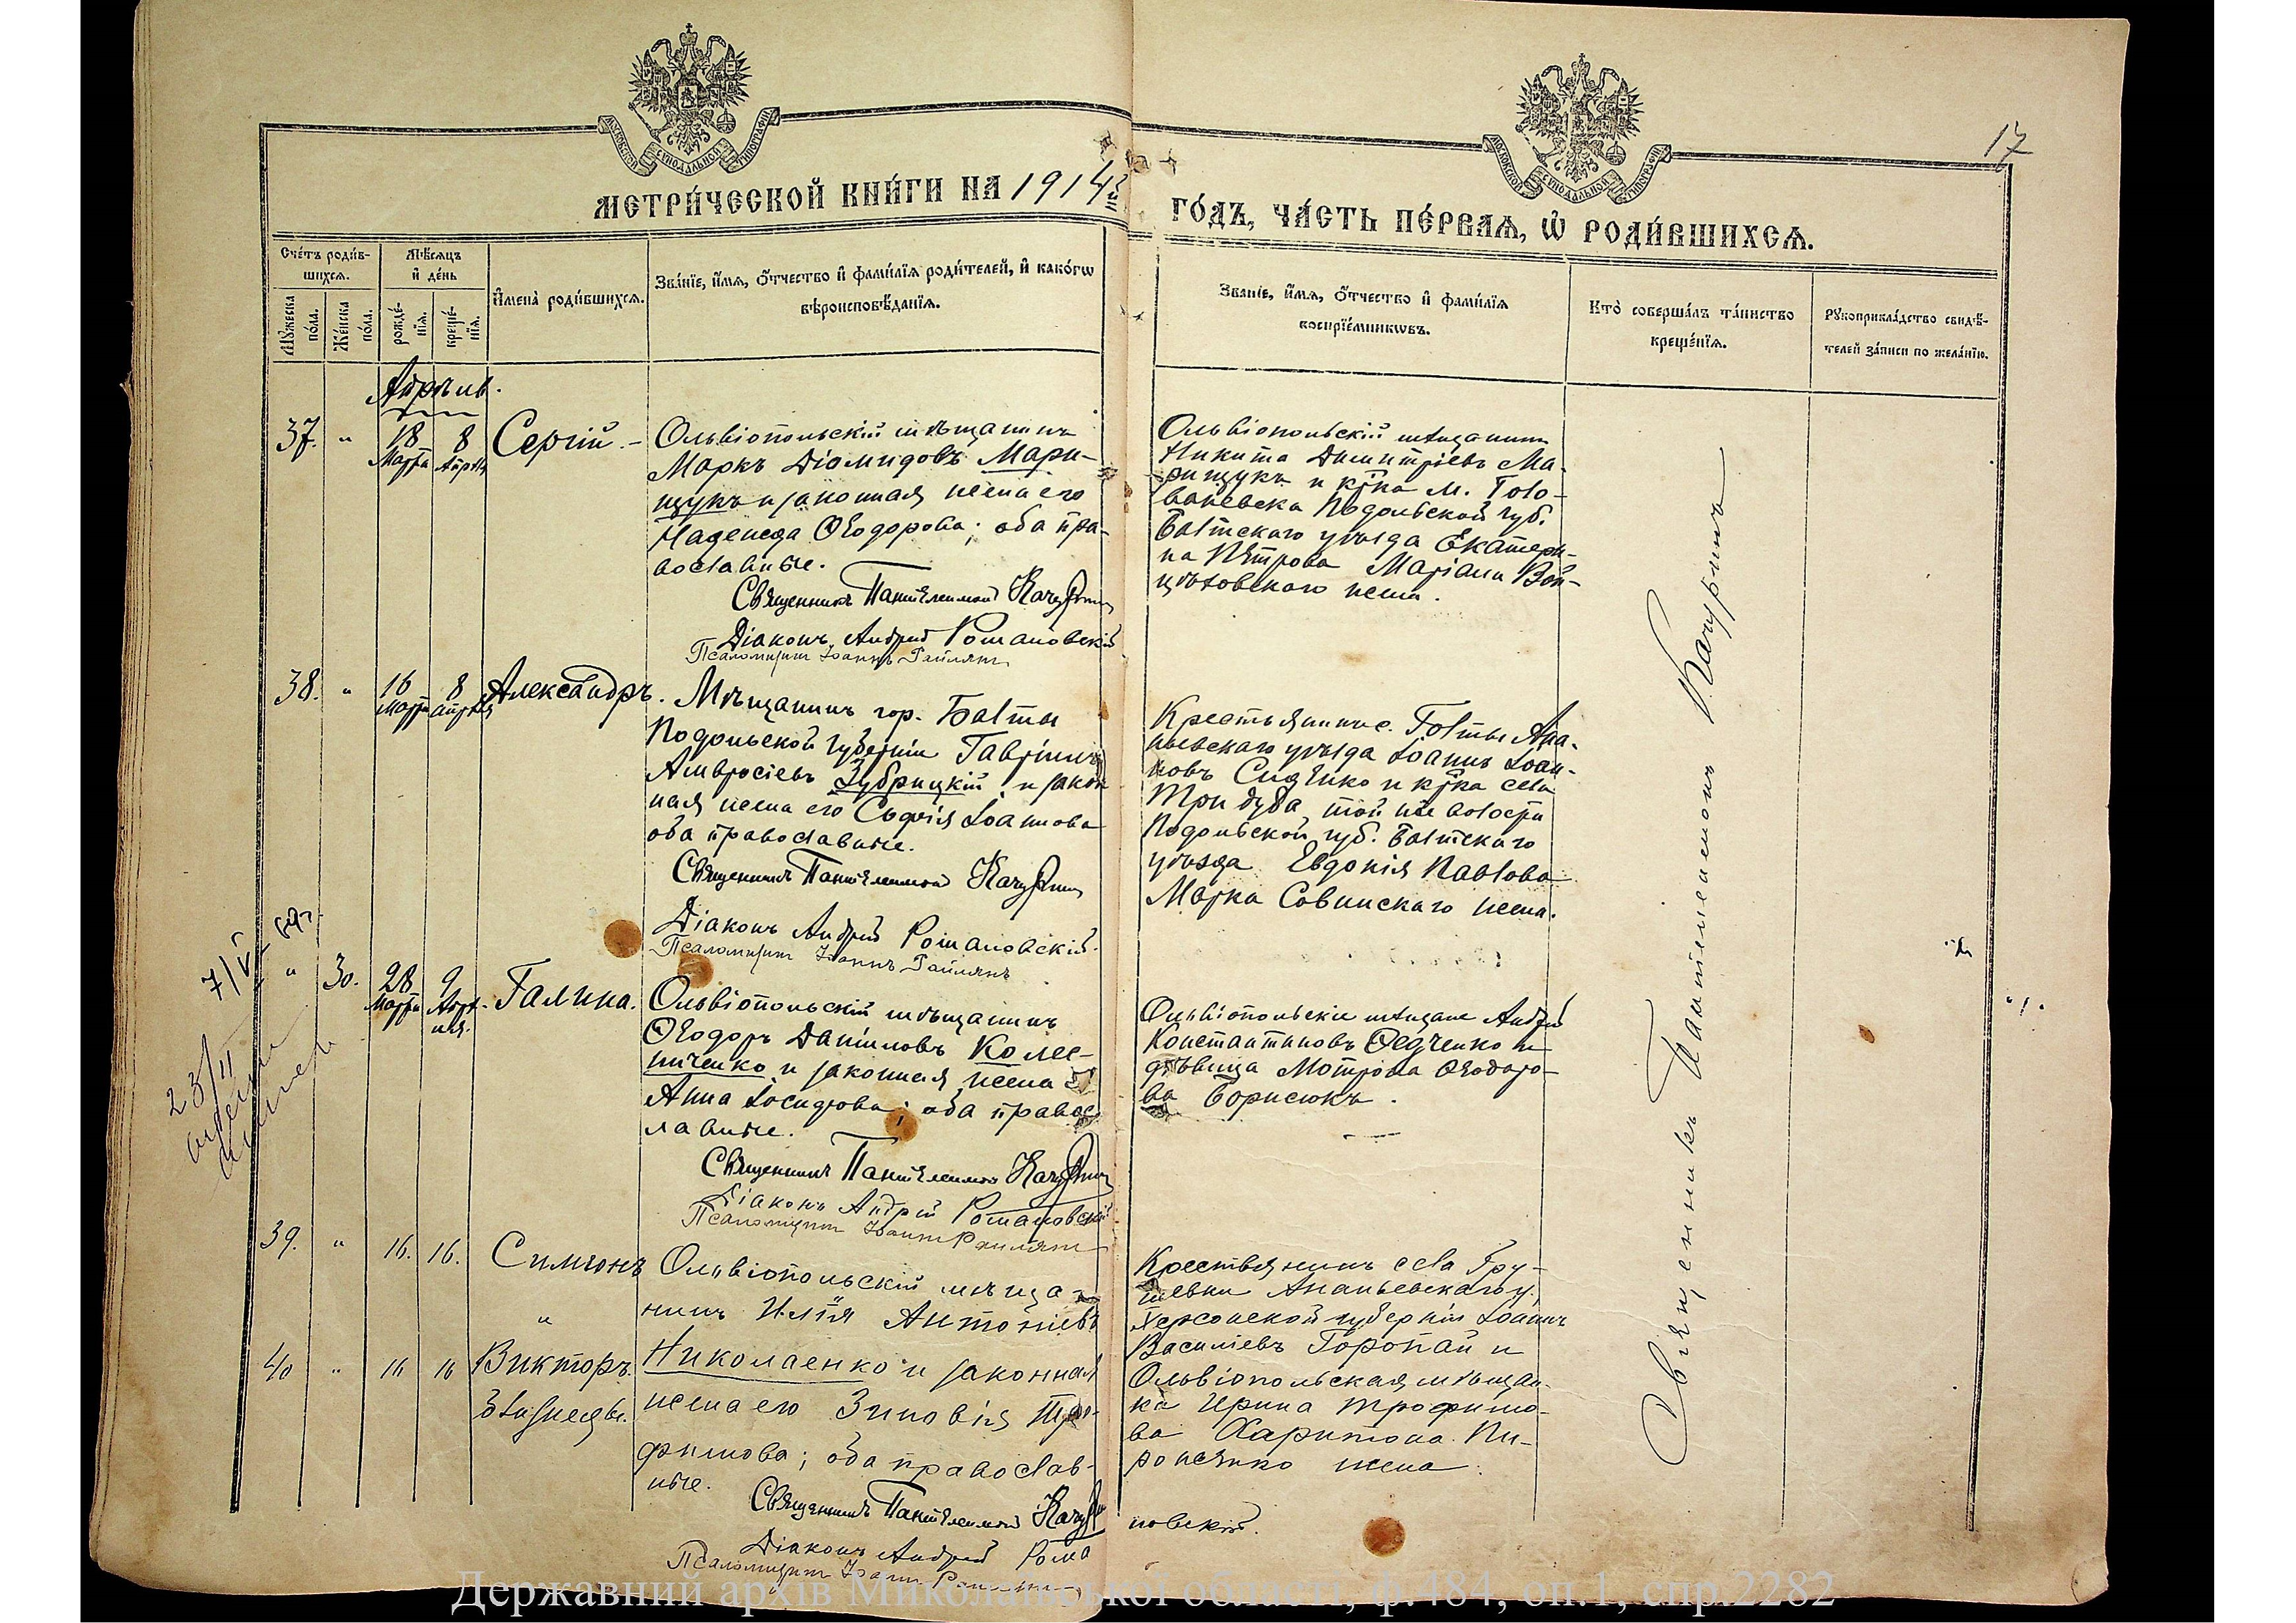 МОСКОВСКОЙ СѴНОДАЛЬНОЙ ТИПОГРАФІИ
МОСКОВСКОЙ СѴНОДАЛЬНОЙ ТИПОГРАФІИ
17
МЕТРИ́ЧЕСКОЙ КНИ́ГИ НА 1914й
ГО́ДЪ, ЧА́СТЬ ПЕ́РВАѦ, Ѡ҆ РОДИ́ВШИХСѦ.
Сче́тъ роди́в-
шихсѧ.
Мужеска по́ла.
Же́нска по́ла.
Мѣ́сѧцъ
и҆ де́нь
рожде́-
нїѧ.
креще́-
нїѧ.
И҆мена̀ роди́вшихсѧ.
Зва́нїе, и҆́мѧ, ѻ҆́тчество и҆ фами́лїѧ роди́телей, и҆ како́гѡ
вѣроисповѣ́данїѧ.
Зва́нїе, и҆́мѧ, ѻ҆́тчество и҆ фами́лїѧ
воспрїе́мникѡвъ.
Кто̀ соверша́лъ та́инство
креще́нїѧ.
Рукоприкла́дство свидѣ́-
телей за́писи по жела́нїю.
Апрѣль.
37. " 18 Марта 8 Апрѣля Сергій.
Ольвіопольскій мѣщанинъ
Маркъ Діомидовъ Мари-
щукъ и законная жена его
Надежда Ѳеодорова; оба пра-
вославные.
Священникъ Пантелеимонъ Качуринъ
Діаконъ Андрей Романовскій
Псаломщикъ Іоаннъ
Ольвіопольскій мѣщанинъ
Никита Димитріевъ Ма-
рищукъ и кр҃ка м. Голо-
ваневска Подольской губ.
Балтскаго уѣзда Екатери-
на Петрова Маріана Вой-
цѣховскаго жена.
38. " 16 Марта 8 Апрѣля Александръ.
Мѣщанинъ гор. Балты
Подольской губерніи Гавріилъ
Амвросіевъ Зубрицкій и закон
ная жена его Софія Іоаннова
оба православные.
Священникъ Пантелеимонъ Качуринъ
Діаконъ Андрей Романовскій.
Псаломщикъ Іоаннъ
Крестьянинъ с. Голты Ана-
ньевскаго уѣзда Іоаннъ Іоан-
новъ Сидѣнко и кр҃ка села
Три дуба, той же волости
Подольской губ. Балтскаго
уѣзда Евдокія Павлова
Марка Совинскаго жена.
7/VI
23/II
" 30. 28 Марта 9 Апрѣ-
ля. Галина.
Ольвіопольскій мѣщанинъ
Ѳеодоръ Даніиловъ Колес-
ниченко и законная жена
Анна Іосифова; оба правос
лавные.
Священникъ Пантелеимонъ Качуринъ
Діаконъ Андрей Романовскій
Псаломщикъ Іоаннъ
Ольвіопольскіе мѣщане Андрей
Константиновъ Федченко и
дѣвица Мотрона Ѳеодоро-
ва Борисюкъ.
39. " 16. 16. Симеонъ
"
40 " 16 16 Викторъ.
близнецы.
Ольвіопольскій мѣща-
нинъ Илія Антоніевъ
Николаенко и законная
жена его Зиновія Тро-
фимова; оба православ-
ные.
Священникъ Пантелеимонъ
Діаконъ Андрей Рома
новскій.
Псаломщикъ Іоаннъ
Крестьянинъ села Гру-
шевки Ананьевскаго у.
Херсонской губерніи Іоаннъ
Василіевъ Горопай и
Ольвіопольская мѣщан-
ка Ирина Трофимо-
ва Харитона Пи-
роженко жена.
Священникъ Пантелеимонъ Качуринъ
Державний архів Миколаївської області, ф.484, оп.1, спр.2282